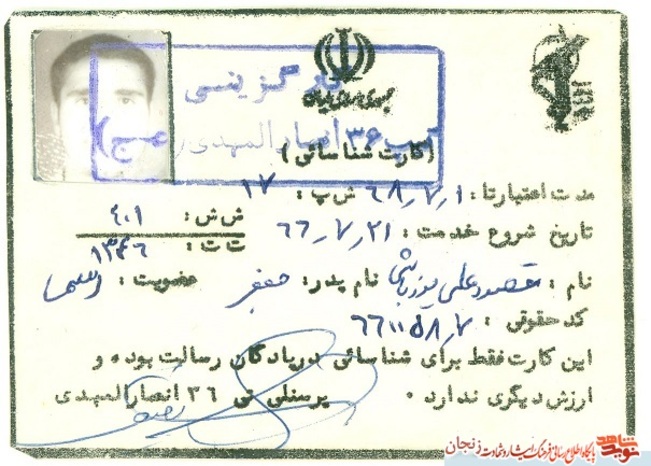 جمهوری اسلامی ایران
کارگزینی
تیپ ۳۶ انصار المهدی (عج)
(کارت شناسائی)
مدت اعتبارتا : ۶۸٫۷٫۱ ش پ : ۱۷
ش ش : ۴۰۱
تاریخ شروع خدمت : ۶۶٫۷٫۲۱
ت ت : ۱۳۴۶
نام : مقصود علی یوزباشی نام پدر : جعفر عضویت :
کد حقوقی : ۶۶۱۱۵۸٫۷
این کارت فقط برای شناسائی در پادگان رسالت بوده و
ارزش دیگری ندارد ۰ پرسنلی تی ۳۶ انصارالمهدی
نوید شاهد پایگاه اطلاع رسانی فرهنگ ایثار و شهادت زنجان